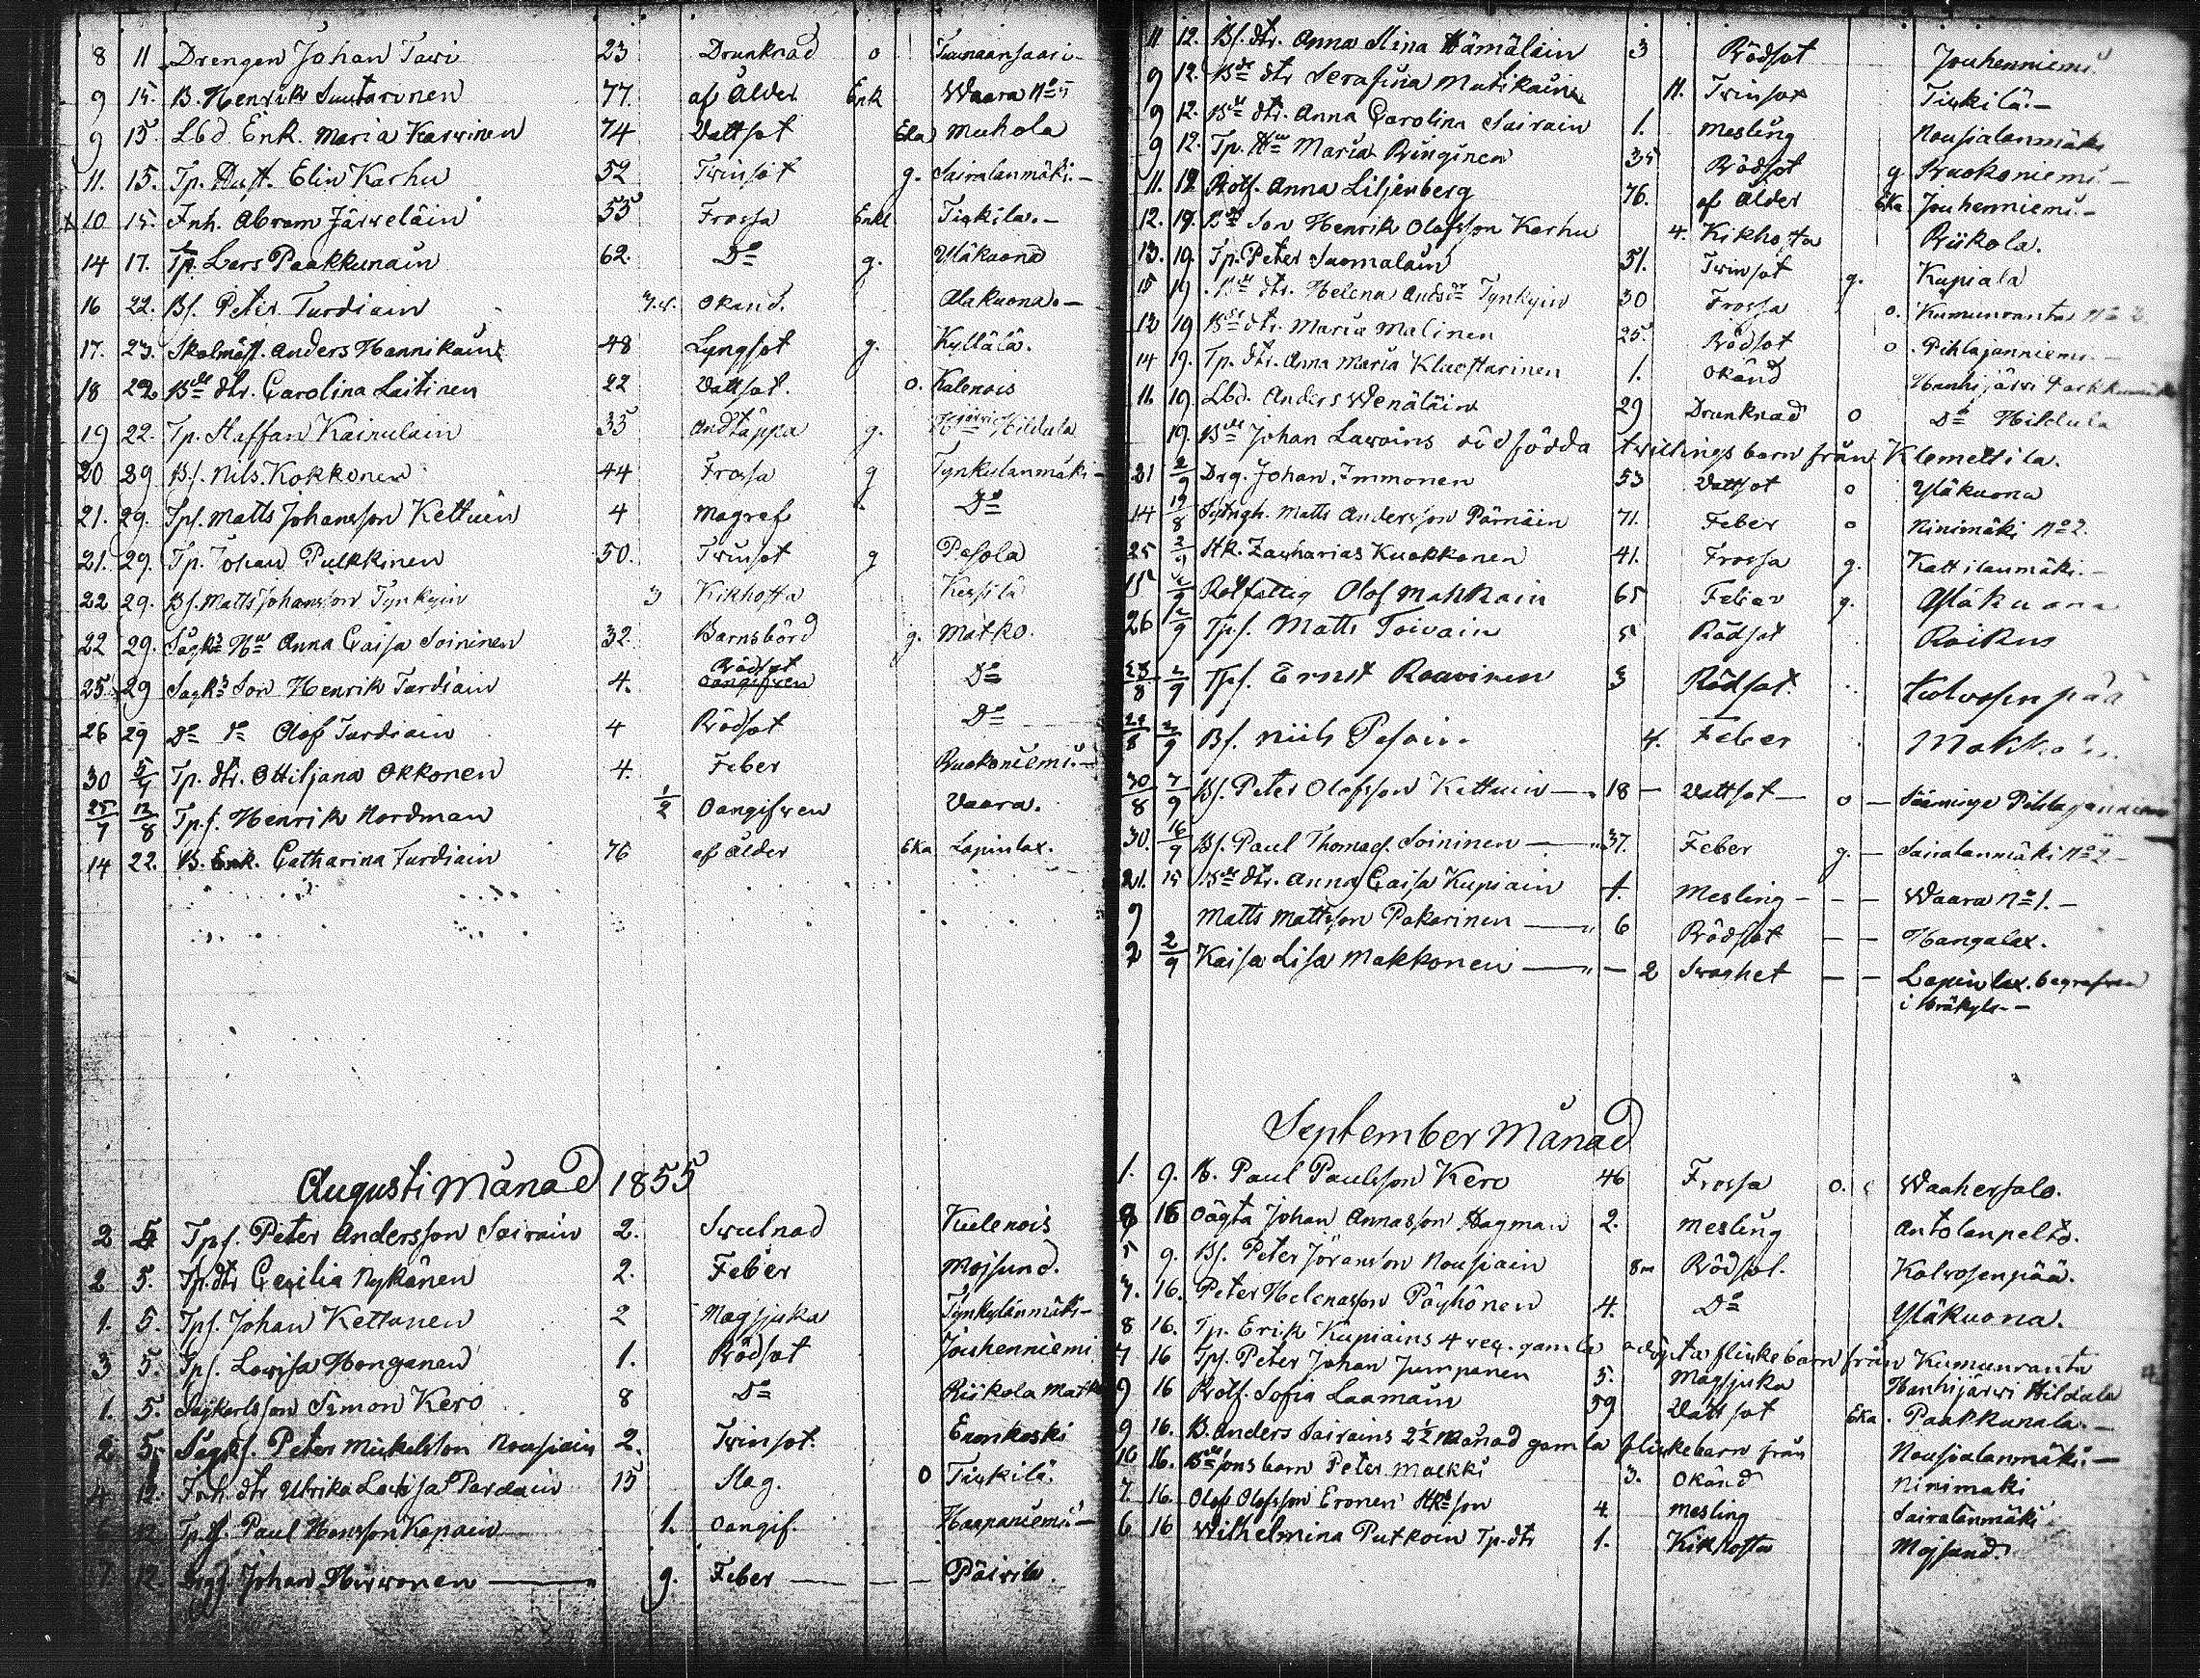 8 11 Drengen Johan Tawi 23 Drunknad o Tuunaansaari
9 15. B. Henrik Suutarinen 77. af Ålder Enk Waara No 5
9 15. Lbd Enk. Maria Karvinen 74 Vattsot Eka Muhola
11. 15. Tp. Hust. Elin Karhu 52 Twinsot g. Sairalanmäki.-
x 10 15. Inh. Abram Järveläin 55 Frossa Enkl Tiukila.-
14 17. Tp. Lars Paakkunain 62. Do g. Yläkuona
16 22. Bf. Peter Turdiain 3.v. Okänd. Alakuona.-
17. 23. Skolmäst. Anders Hannikain 48 Lungsot g. Kyllälä.
18 22 Bde dtr. Carolina Laitinen 22 Vattsot. o. Kalenois
19 22. Tp. Staffan Kairulain 35 Andtäppa g. Hildula
20 29 Bf. Nils Kokkonen 44 Frossa g Tynkylänmäki-
21. 29. Tpf. Matts Johansson Kettuin 4 Magref Do
21. 29. Tp. Johan Pulkkinen 50. Twinsot g Pesola
22 29. Bf. Matts Johansson Tynkyin 3 Kikhosta Kersilä
22 29. Sågks Hu Anna Caisa Soininen 32. Barnsbörd g. Matko.
25. 29 Sagks Son Henrik Turdiain 4. Rödsot Oangifven Do
26 29 Do Do Olof Turdiain 4 Rödsot Do
30 5/9 Tp. dtr. Ottiljana Okkonen 4. Feber Ruokoniemi.-
25/7 12/8 Tpf. Henrik Nordman 1/2 Oangifven Vaara.
14 22. B. Enk. Catharina Turdiain 76 af Ålder Eka Lapinlax.
Augusti Månad 1855
2 5 Tpf. Peter Andersson Sairain 2. Swulnad Kulenois
2 5. Tp. dtr Cecilia Nykänen 2. Feber Mojsund.
1. 5. Tpf. Johan Kettunen 2 Magsjuka Tynkylänmäki-
3 5. Tpf. Lovisa Honganen 1. Rödsot Jouhenniemi
1. 5. Simon Kero 8 Do Riikola
2 5. Sågkf. Peter Mickelsson Nousiain 2. Twinsot. Enonkoski
4. 12. Inh. dtr Ulrika Lovisa Pardain 15 Slag. o Tiukilä.
12. Paul Hansson Kopain 1. Oangif. Haapaniemi-
7. 12. Drgf. Johan Hirvonen 9. Feber Päivilä.
11 12. Bf. dtr. Anna Stina Hämäläin 3 Rödsot Jouhenniemi
9 12. Bde dtr Serafina Mutikain 11. Twinsot Tiukilä.-
9 12. Bde dtr. Anna Carolina Sairain 1. Mesling Nousialanmäki
9 12. Tp. Hu Maria Ringinen 35 Rödsot g Ruokoniemi-
11. 12 Rotf. Anna Liljenberg 76. af Ålder Eka Jouhenniemi.-
12. 19. Bde Son Henrik Olofsson Karhu 4. Kikhosta Riikola.
13. 19. Tp. Peter Suomalain 51. Twinsot g. Kupiala
15 19. Bde dtr. Helena Andsdr Tynkyin 30 Frossa o. Kumunranta No 2
12 19 Bde dtr. Maria Malinen 25. Rödsot o. Pihlajanniemi.-
14 19. Tp. dtr. Anna Maria Kluostarinen 1. Okänd Hanhijärvi
11. 19. Lbd. Anders Wenäläin 29 Drunknad o Do Hildula
19. Bde Johan Lavoins dödfödda twillingsbarn från Klemettila.
21 2/9 Drg. Johan Immonen 53 Vattsot o Yläkuona
14 19/8 Matts Andersson Pärnäin 71. Feber o Ninimäki No 2.
25 2/9 Hk. Zacharias Kuokkanen 41. Frossa g. Kattilanmäki.-
15 2/9 Rotfattig Olof Makkain 65 Feber g. Yläkuona
26 2/9 Tpf. Matts Toivain 5 Rödsot Raikus
28/8 2/9 Tpf. Ernst Roavinen 3 Rödsot. Kolvosenpää
2/9 Bf. Niils Pesoin. 4. Feber
30/8 7/9 Bf. Peter Olofsson Kettuin 18 Vattsot o Säminge
30. 16/9 Bf. Paul Thomasf. Soininen 37. Feber g. Sairalanmäki No 2-
21. 15 Bde dtr. Anna Caisa Kupiain 1. Mesling Waara No 1.-
9 Matts Mattsson Pakarinen 6 Rödsot Hangalax.
2 2/9 Kaisa Lisa Makkonen 2 Svaghet Lapinlax. begrafven
i Bräkylä-
September Månad
1. 9. B. Paul Paulsson Kero 46 Frossa o. Waahersalo.
8 16 Oägta Johan Annasson Hagman 2. Mesling Antolanpelto.
5 9. Bf. Peter Jöransson Nousiain 8m Rödsot. Kolvosenpää.
3. 16. Peter Helenasson Pöyhönen 4. Do Yläkuona.
8 16. Tp. Erik Kupiains 4 vec. gamla odöpta flickebarn från Kumunranta
7 16 Tpf. Peter Johan Jumpanen 5. Magsjuka Hanhijärwi Hildula
9 16 Rotf. Sofia Laamain 59 Vattsot Eka. Paakkunala.-
9 16. B. Anders Sairains 2 1/2 Månad gamla flickebarn från Nousialanmäki-
10 16. Bde sons barn Peter Moekki 3. Okänd Ninimäki
7. 16. Olof Olofsson Eronen Hks son 4. Mesling Sairalanmäki
6 16 Wilhelmina Putkoin Tp. dtr 1. Kikhosta Mojsund.